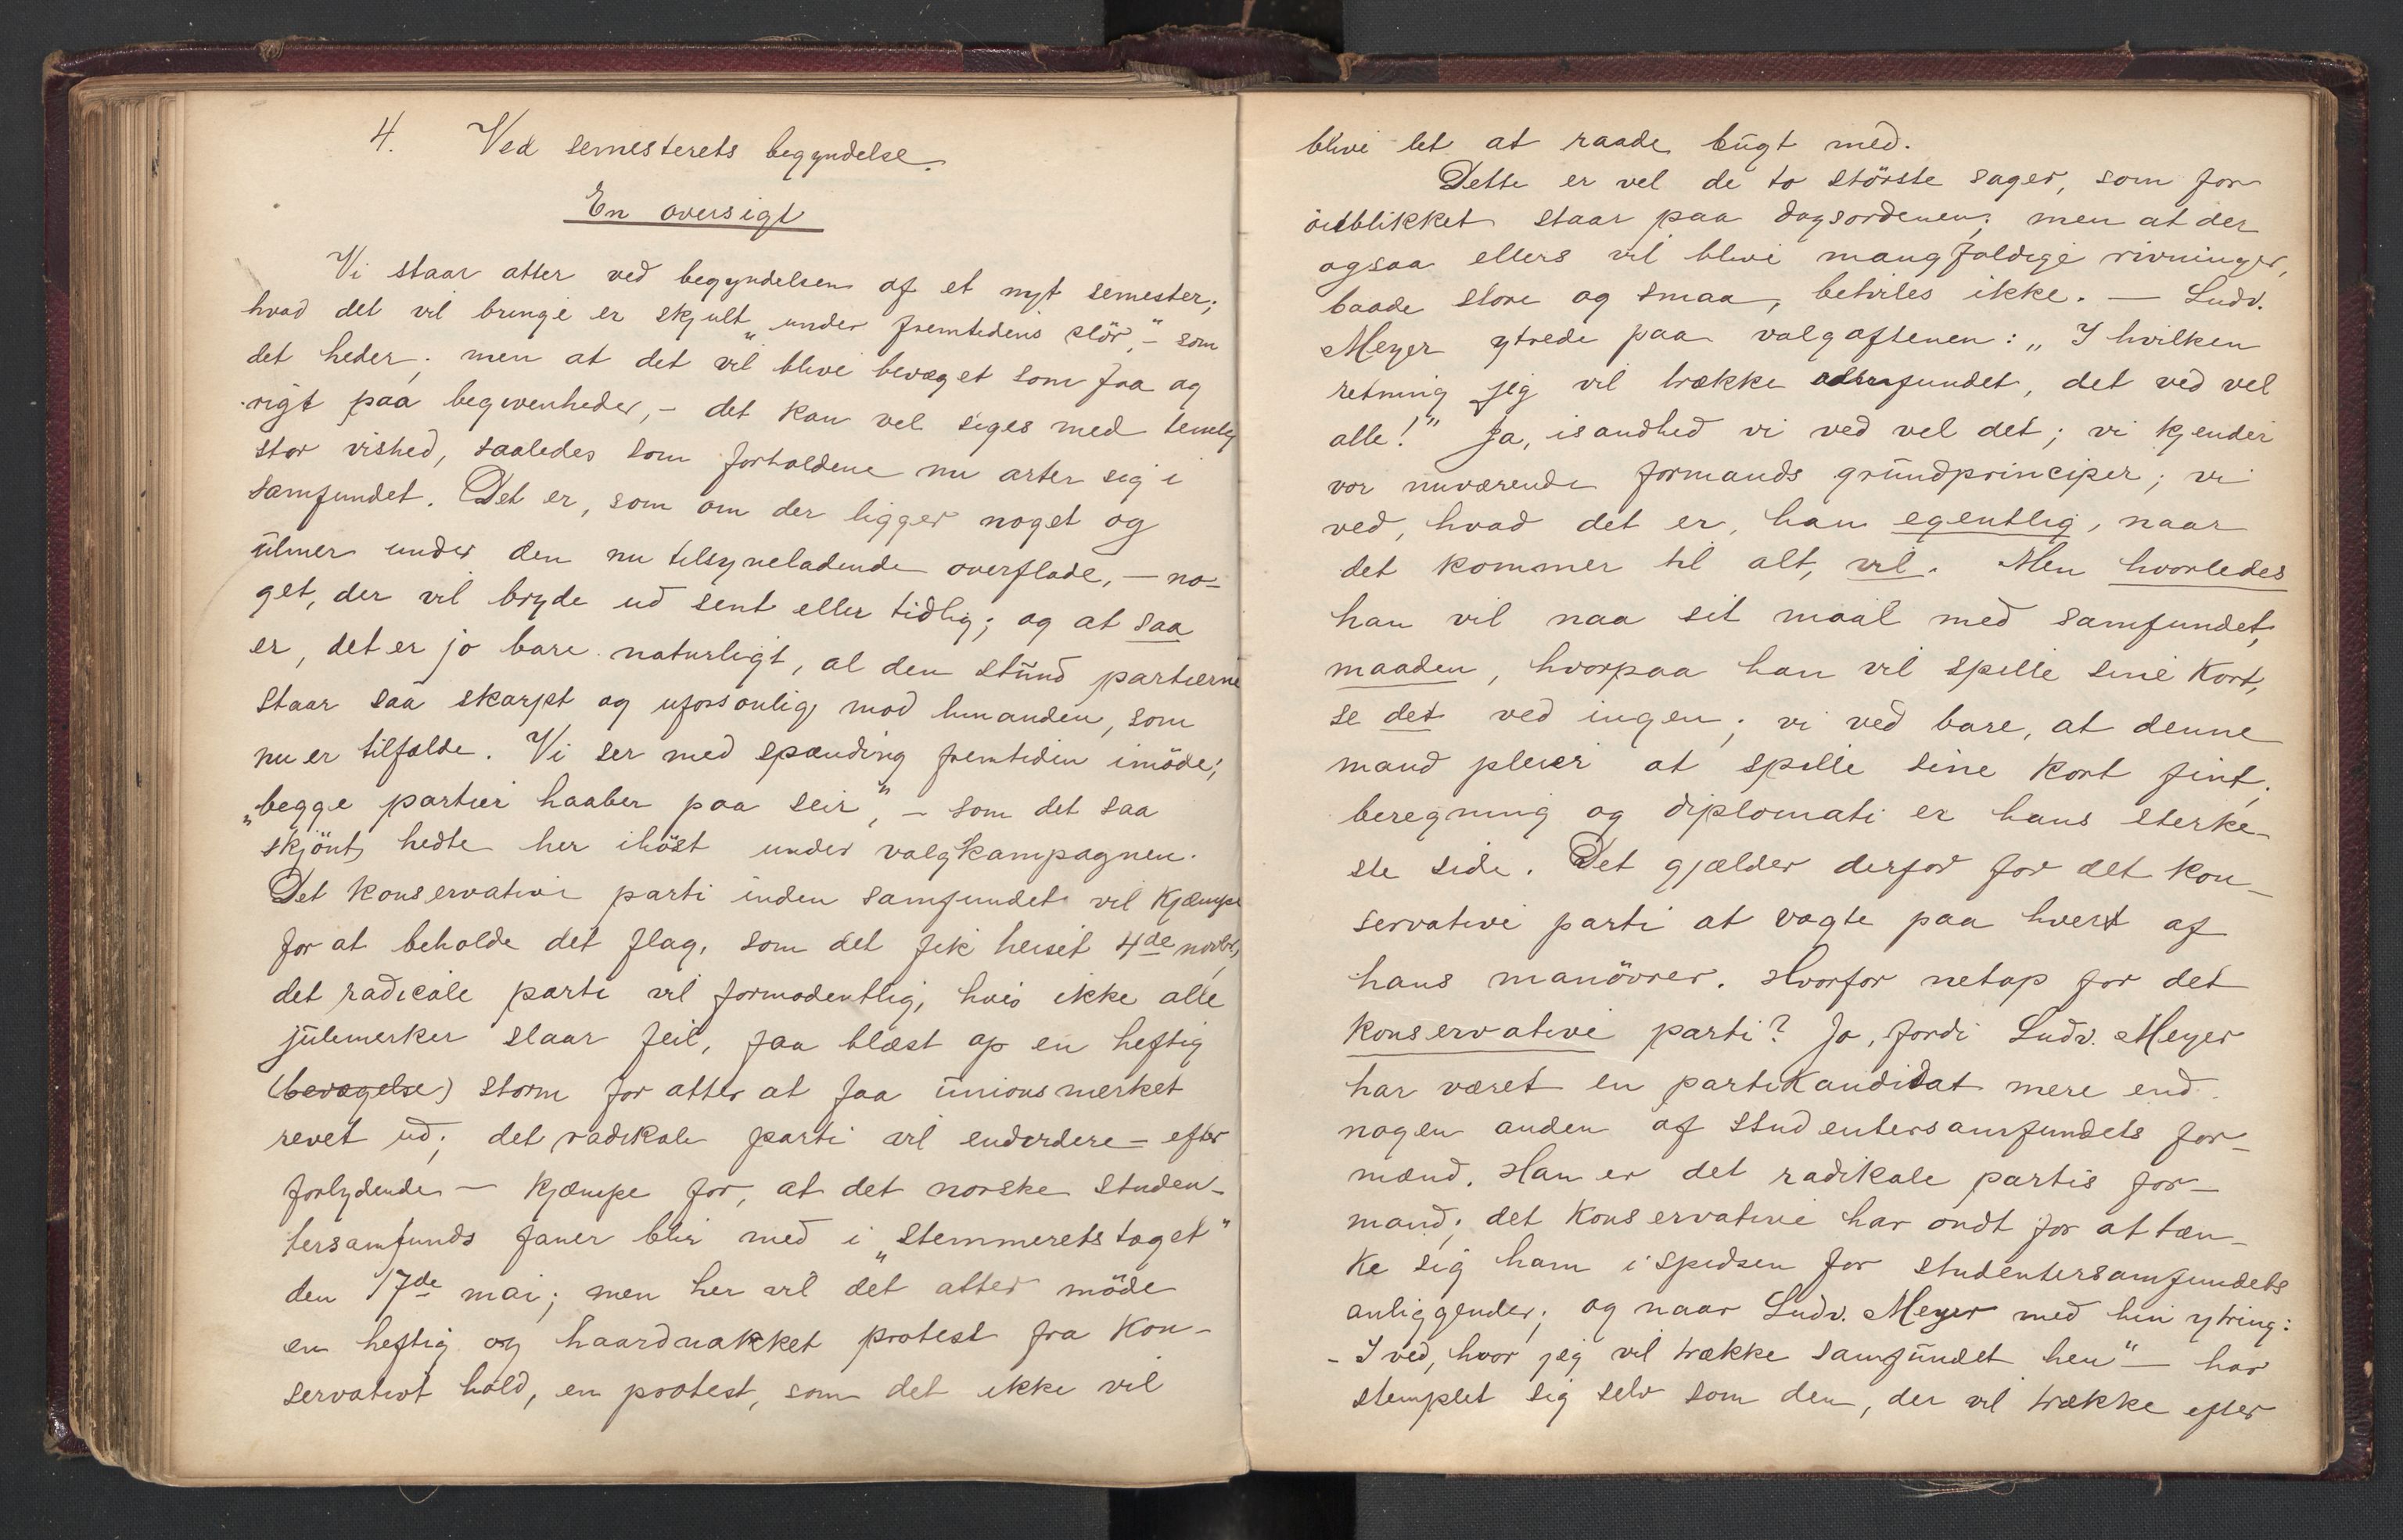 4. Ved semesterets begyndelse.
En oversigt
Vi staar atter ved begyndelsen af et nyt semester;
hvad det vil bringe er skjult „under fremtidens slör," – som
det heder; men at det vil blive bevæget som faa og
rigt paa begivenheder, – det kan vel siges med temlig
stor vished, saaledes som forholdene nu arter sig i
samfundet. Det er, som om der ligger noget og
ulmer under den nu tilsyneladende overflade, – no-
get, der vil bryde ud sent eller tidlig; og at saa
er, det er jo bare naturligt, al den stund partierne
staar saa skarpt og uforsonlig mod hinanden, som
nu er tilfælde. Vi ser med spænding fremtiden imöde;
„begge partier haaber paa seir", – som det saa
skjönt hedte her ihöst under valgkampagnen.
Det konservative parti inden samfundet vil kjæmpe
for at beholde det flag, som det fik heiset 4de novbr,
det radicale parti vil formodentlig, hvis ikke alle
julemerker slaar feil, faa blæst op en heftig
(bevægelse) storm for atter at faa unionsmerket
revet ud; det radikale parti vil endvidere – efter
forlydende – kjæmpe for, at det norske studen-
tersamfunds faner blir med i „stemmeretstoget"
den 17de mai; men her vil det atter möde
en heftig og haardnakket protest fra kon-
servativt hold, en protest, som det ikke vil
blive let at raade bugt med.
Dette er vel de to störste sager, som for
öieblikket staar paa dagsordenen; men at der
ogsaa ellers vil blive mangfoldige rivninger,
baade store og smaa, betviles ikke. – Ludv.
Meyer ytrede paa valgaftenen: „I hvilken
retning jeg vil trække samfundet, det ved vel
alle!" Ja, isandhed vi ved vel det; vi kjender
vor nuværende formands grundprinciper; vi
ved, hvad det er, han egentlig, naar
det kommer til alt, vil. Men hvorledes
han vil naa sit maal med samfundet,
maaden, hvorpaa han vil spille sine kort,
se det ved ingen; vi ved bare, at denne
mand pleier at spille sine kort fint;
beregning og diplomati er hans sterke-
ste side. Det gjælder derfor for det kon-
servative parti at vagte paa hvert af
hans manövrer. Hvorfor netop for det
konservative parti? Jo, fordi Ludv. Meyer
har været en partikandidat mere end
nogen anden af studentersamfundets for-
mænd. Han er det radikale partis for-
mand; det konservative har ondt for at tæn-
ke sig ham i spidsen for studentersamfundets
anliggender; og naar Ludv. Meyer med hin ytring:
– I ved, hvor jeg vil trække samfundet hen" – har
stemplet sig selv som den, der vil trække efter